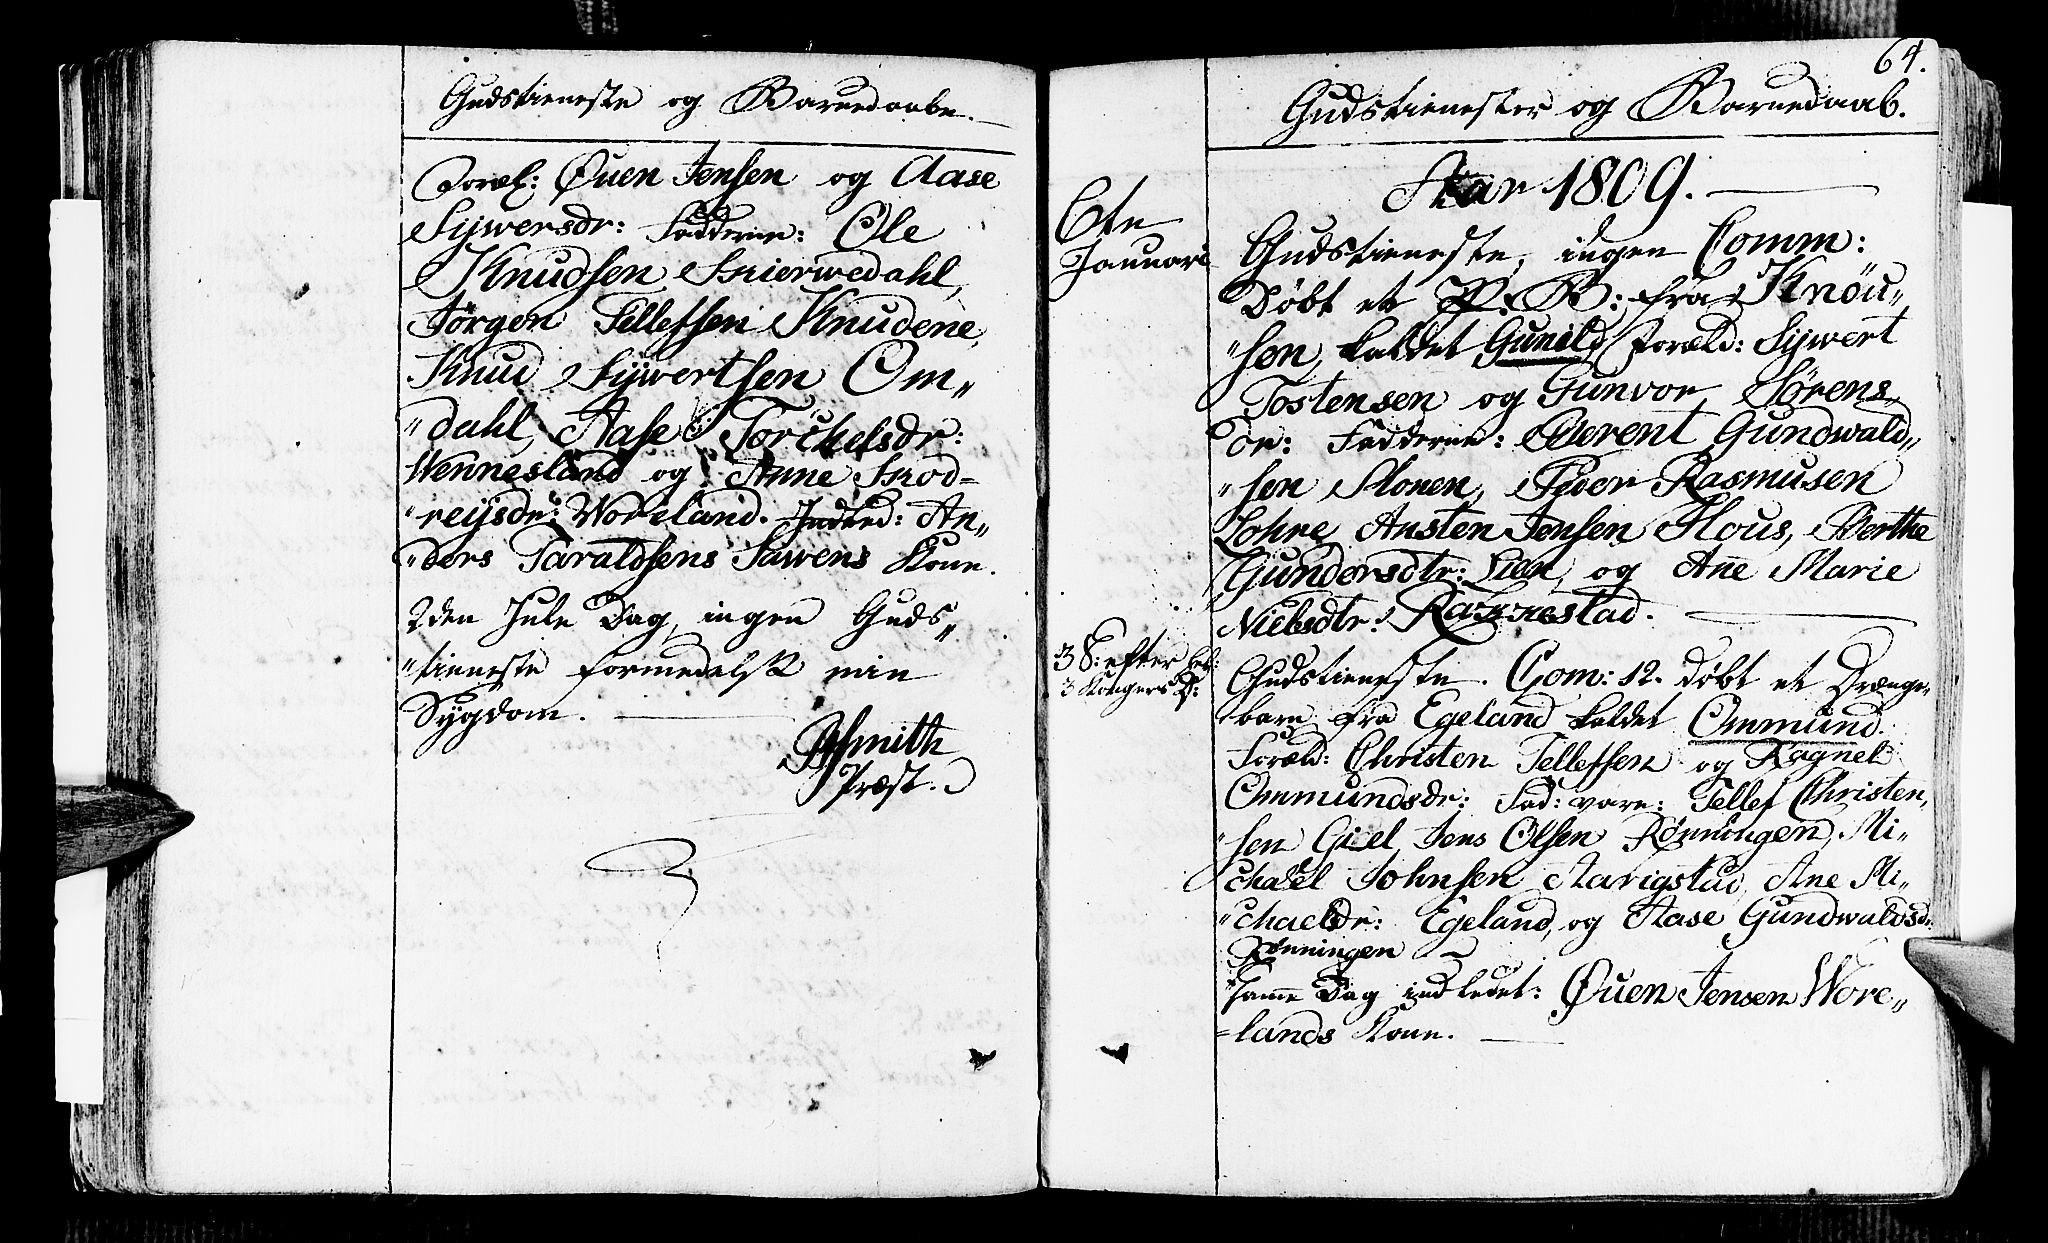 Gudstieneste og Barnedaabe.
Foræl: Øuen Jensen og Aase
Sywersdr: Fadderne: Ole
Knudsen Skierwedahl,
Jørgen Tellefsen Knudene,
Knud Sywertsen Om„
„dahl, Aase Torchelsdr:
Wennesland og Anne Giod=
„reysdr: Woreland. Indled: An„
„ders Taraldsens Sawens Kone.
2den Jule Dag, ingen Guds„
„tieneste formedelst min
Sygdom.
Smith
Præst.
64.
Gudstienester og Barnedaab.
Aar 1809.
6te
Januari
Gudstieneste, ingen Comm:
Døbt et P. B: fra Knøu„
„sen, kaldet Gunild, Foræld: Sywert
Tostensen og Gunvor Sørens„
dr: Fadderne: Berent Gundwald„
„sen Monen, Peder Rasmusen
Lohne, Austen Jensen Hous, Berthe
Gundersdtr: Lien, og Añe Marie
Nielsdtr: Rannestad.
3 S: efter
3 Kongers D:
Gudstieneste. Com: 12. Døbt et Drænge„
barn fra Egeland kaldet Ommund.
Foræld: Christen Tellefsen og Ragnel
Ommundsdr: Fad: vare: Tellef Christen„
„sen Jens Olsen Rønningen, Mi„
chael Johnsen Aarigstad, Ane Mi„
„chaelsdr: Egeland, og Aase Gundwaldsd:
Rønningen
Samme Dag indledet: Øuen Jensen Wore„
=lands Kone.